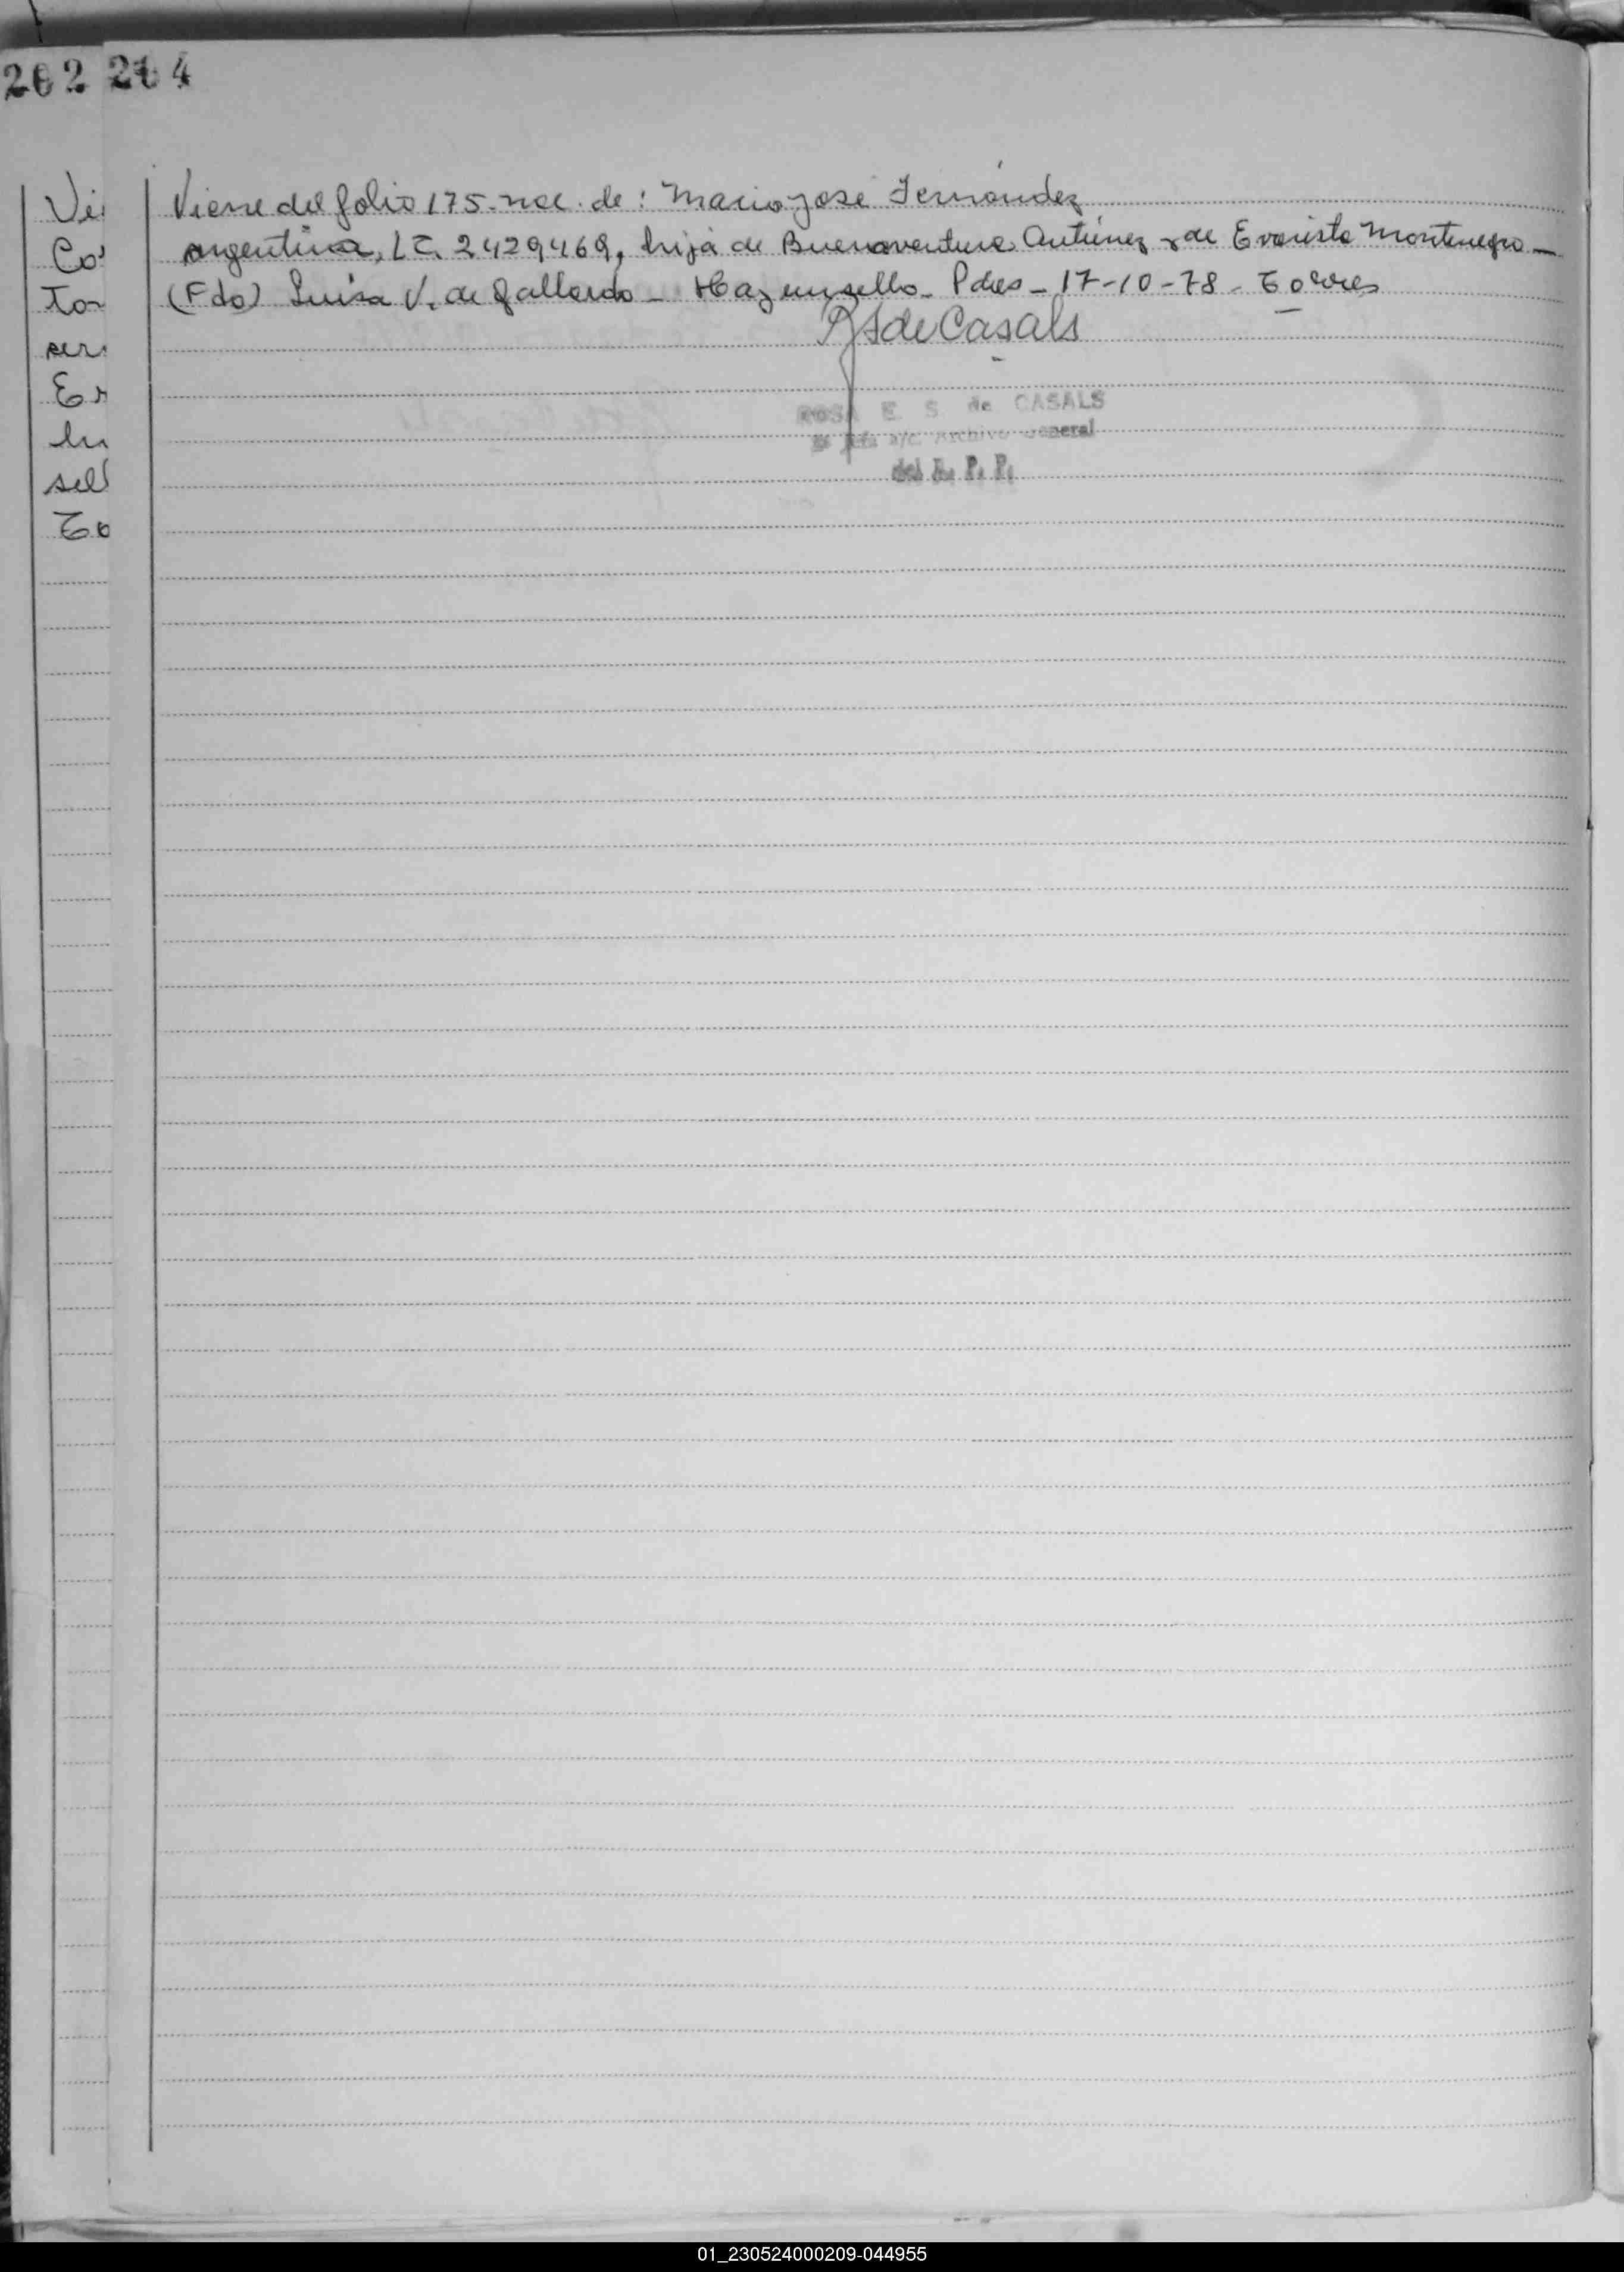 262 264
Viene del folio 175. nac. de: Mario José Fernández
argentina, LC. 2429469, hija de Buenaventura Antúnez y de Evarista Montenegro_
(Fdo) Luisa V. de Gallardo_ Hay un sello_ Pdas_ 17-10-78_ Torres
de Casals
ROSA E. S. de CASALS
a/c. Archivo General
del R. P. P.
Co
Tor
ser
Er
sel
To
01_230524000209-044955